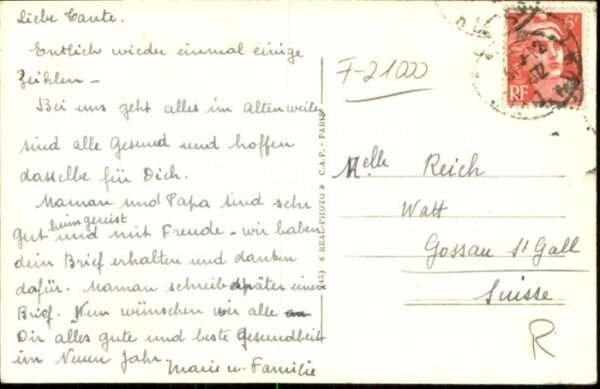 Liebe Tante.
Entlich wieder einmal einige
Zeihlen –
Bei uns geht alles im Alten weiter
sind alle Gesund und hoffen
dasselbe für Dich.
Maman und Papa sind sehr
heimgereist
gut und mit Freude - wir haben
dein Brief erhalten und danken
dafür. Maman schreib später einen
Brief. Nun wünschen wir alle
Dir alles gute und beste Gesundheit
im Neuen Jahr
Marie u. Familie
(45) 6 REAL-PHOTO C.A.P. - PARIS
F-21000
6F
RF
Melle Reich
Watt
Gossau St Gall
Suisse
R